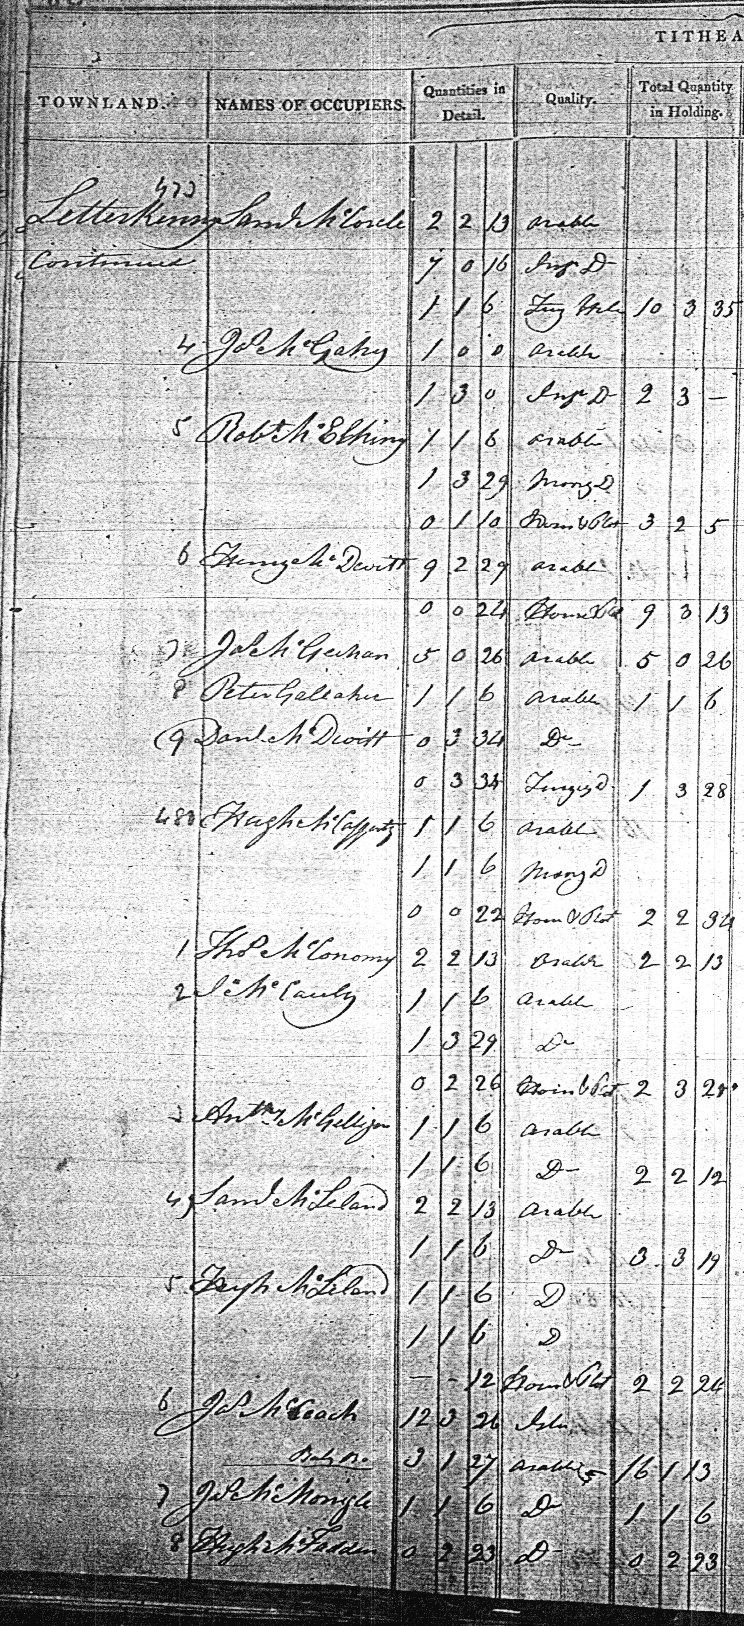 TITHEA
TOWNLAND. NAMES OF OCCUPIERS. Quantities in Detail. Quality. Total Quantity in Holding.
473
Letterkenny Saml McCorcle 2 2 13 arable
Continued 7 0 16 Infr Do
1 1 6 10 3 35
4 Jas McGahey 1 0 0 arable
1 3 0 Infr Do 2 3 —
5 Robt McElhiny 1 1 6 arable
1 3 29 Do
0 1 10 3 2 5
6 Henry McDevitt 9 2 29 arable
0 0 24 9 3 13
7 Jas McGeehan 5 0 26 arable 5 0 26
8 Peter Gallaher 1 1 6 arable 1 1 6
9 Danl McDevitt 0 3 34 Do
0 3 34 Do 1 3 28
480 Hugh McCafferty 1 1 6 arable
1 1 6 Do
0 0 22 2 2 34
1 Thos McConomy 2 2 13 arable 2 2 13
2 Js McCauly 1 1 6 arable
1 3 29 Do
0 2 26 2 3 21
3 Anthy McGettigan 1 1 6 arable
1 1 6 Do 2 2 12
4 Saml McLeland 2 2 13 arable
1 1 6 Do 3 3 19
5 Hugh McLeland 1 1 6 Do
1 1 6 Do
— — 12 2 2 24
6 Jas McCoach 12 3 26
3 1 27 arable 16 1 13
7 Jas McMonigle 1 1 6 Do 1 1 6
8 Hugh McFadden 0 2 23 Do 0 2 23